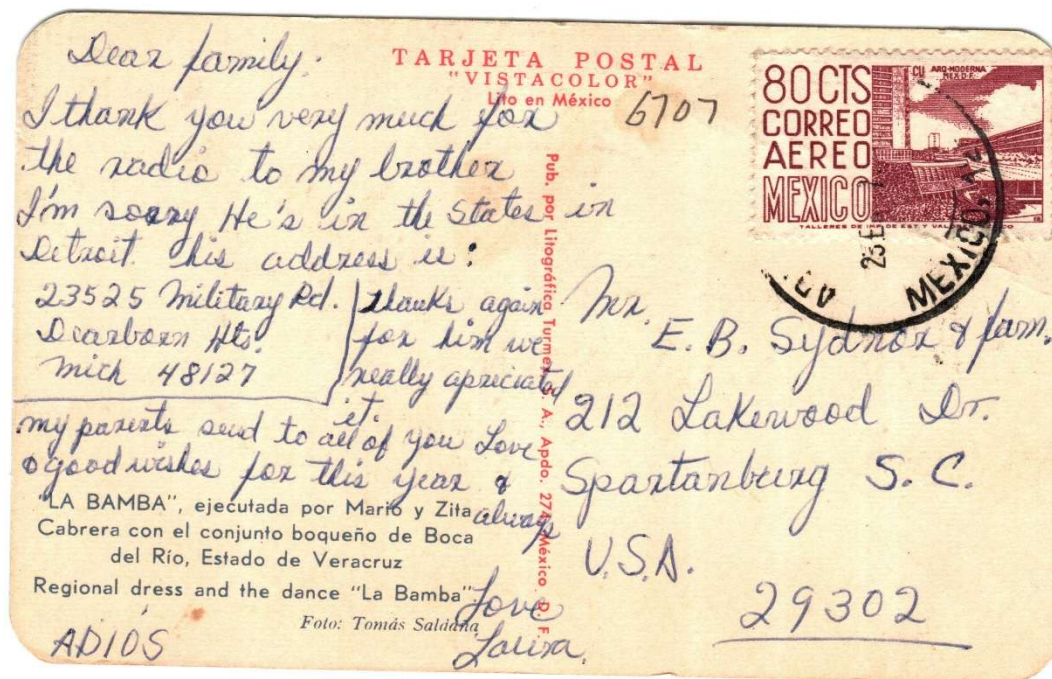 Dear family:
I thank you very much for
the radio to my brother
I'm sorry He's in the States in
Detroit his address is:
23525 Military Rd.
Dearborn Hts.
Mich 48127
thanks again
for him we
really apriciated
it.
my parents send to all of you Love
& good wishes for this year &
always
Love
Laura.
ADIOS
"LA BAMBA", ejecutada por Mario y Zita
Cabrera con el conjunto boqueño de Boca
del Río, Estado de Veracruz
Regional dress and the dance "La Bamba"
Foto: Tomás Saldaña
TARJETA POSTAL
"VISTACOLOR"
Lito en México
6707
Pub. por Litográfica Turmex, S. A., Apdo. 274, México, D. F.
80 CTS
CORREO
AEREO
MEXICO
CU ARQ. MODERNA
MEX. D.F.
TALLERES DE IMP. DE EST. Y VALORES MEXICO
MEXICO,
Mr.
E. B. Sydnor & fam.
212 Lakewood Dr.
Spartanburg S. C.
U.S.A.
29302